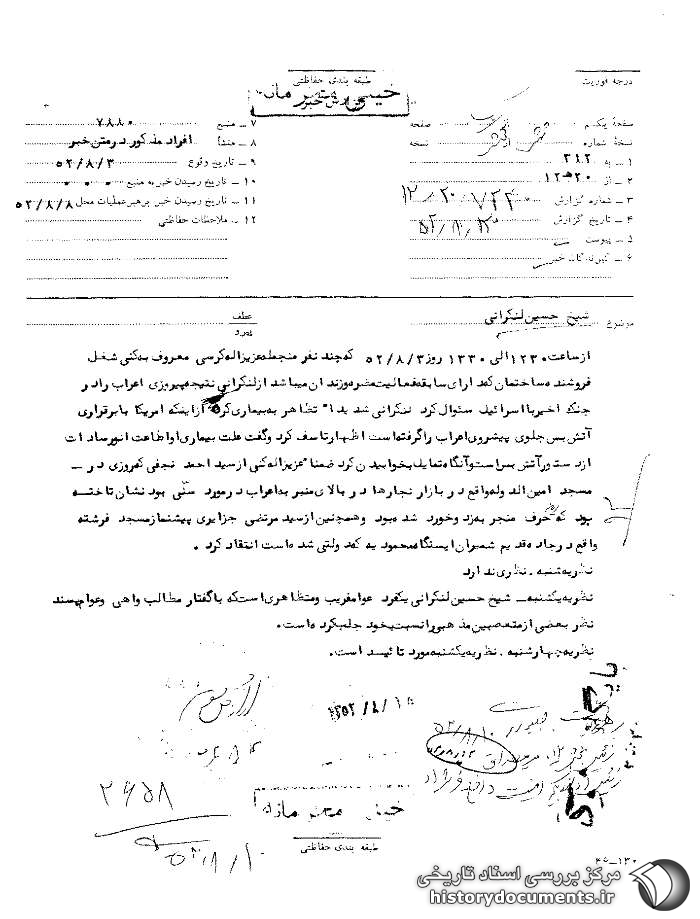 درجه فوریت
طبقه بندی حفاظتی
خیلی محرمانه
گزارش خبر
صفحهٔ یکم صفحه
نسخهٔ شماره نسخه
۱ ـ به ۳۱۲
۲ ـ از ۲۰ﻫ۱۲
۳ ـ شماره گزارش
۴ ـ تاریخ گزارش
۵ ـ پیوست
۶ ـ گیرندگان خبر
۷ ـ منبع ۷۸۸۰
۸ ـ منشأ افراد مذکور در متن خبر
۹ ـ تاریخ وقوع ۵۲/۸/۳
۱۰ ـ تاریخ رسیدن خبر به منبع
۱۱ ـ تاریخ رسیدن خبر برهبر عملیات محل ۵۲/۸/۸
۱۲ ـ ملاحظات حفاظتی
موضوع شیخ حسین لنکرانی
عطف
پیرو
از ساعت ۱۲۳۰ الی ۱۳۳۰ روز ۵۲/۸/۳ که چند نفر منجمله عزیزاله کرسی معروف به کنی شغل
فروشنده ساختمان که دارای سابقه فعالیت مضره وزندان میباشد از لنکرانی نتیجه پیروزی اعراب را در
جنگ اخیر با اسرائیل سئوال کرد لنکرانی شدیدا" تظاهر به بیماری کرده از اینکه امریکا با برقراری
آتش بس جلوی پیشروی اعراب را گرفته است اظهار تاسف کرد و گفت علت بیماری او اطاعت انورسادات
از دستور آتش بس است و آنگاه تمایل بخوابیدن کرد ضمنا" عزیزاله کنی از سید احمد نجفی که روزی در ـ
مسجد امین الدوله واقع در بازار نجارها در بالای منبر به اعراب در مورد سنی بود نشان تاخته
بود که حرف منجر به زد و خورد شده بود وهمچنین از سید مرتضی جزایری پیشنماز مسجد فرشته
واقع در جاده قدیم شمیران ایستگاه محمودیه که دولتی شده است انتقاد کرد .
نظریه شنبه . نظری ندارد
نظریه یکشنبه ـ شیخ حسین لنکرانی یکفرد عوامفریب ومتظاهری است که با گفتار مطالب واهی وعوام پسند
نظر بعضی از متعصبین مذهبی را نسبت بخود جلب کرده است.
نظریه چهارشنبه . نظریه یکشنبه مورد تائید است.
۱۳۵۲/۸/۱۵
۵۲/۸/۱۰
۲۶۵۸
۵۲/۸/۱۰
خیلی محرمانه
طبقه بندی حفاظتی
۴۵ـ۱۳۰
مرکز بررسی اسناد تاریخی
historydocuments.ir